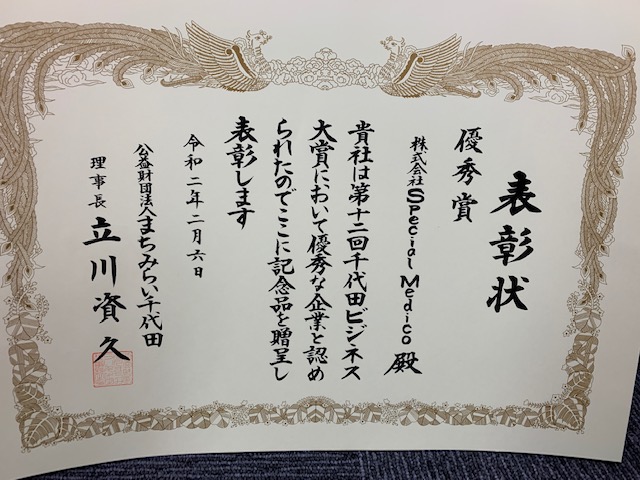 表彰状
優秀賞
株式会社Special Medico 殿
貴社は第十二回千代田ビジネス
大賞において優秀な企業と認め
られたのでここに記念品を贈呈し
表彰します
令和二年二月六日
公益財団法人まちみらい千代田
理事長 立川資久